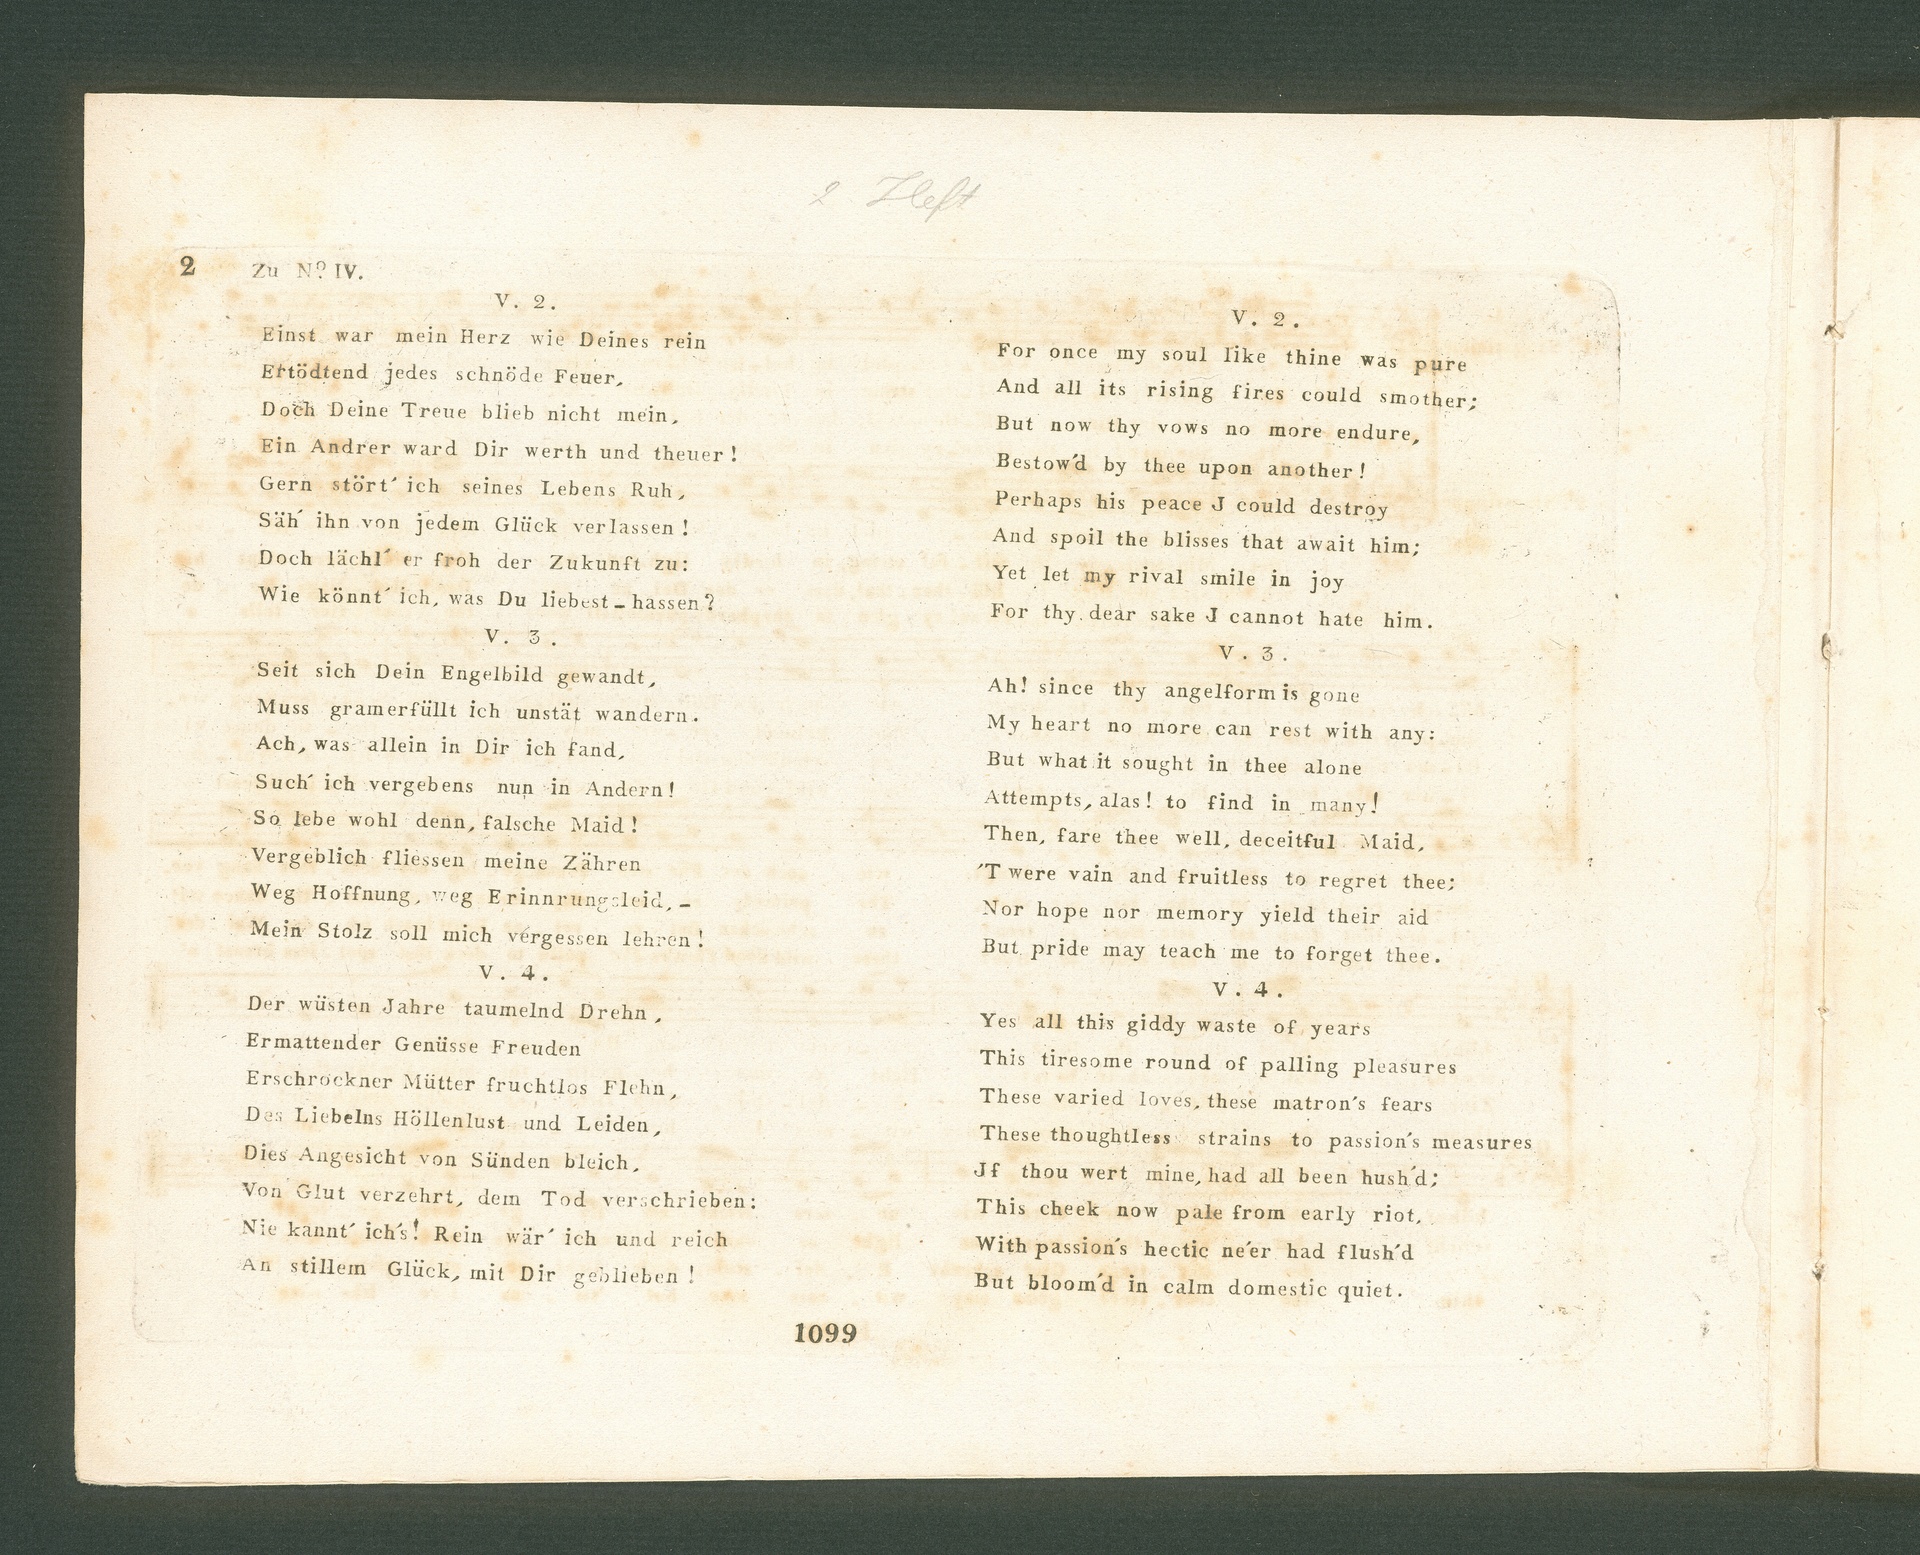 2 Heft
2 Zu Nº IV.
V. 2.
Einst war mein Herz wie Deines rein
Ertödtend jedes schnöde Feuer,
Doch Deine Treue blieb nicht mein,
Ein Andrer ward Dir werth und theuer!
Gern stört' ich seines Lebens Ruh,
Säh' ihn von jedem Glück verlassen!
Doch lächl' er froh der Zukunft zu:
Wie könnt' ich, was Du liebest_hassen?
V. 3.
Seit sich Dein Engelbild gewandt,
Muss gramerfüllt ich unstät wandern.
Ach, was allein in Dir ich fand,
Such' ich vergebens nun in Andern!
So lebe wohl denn, falsche Maid!
Vergeblich fliessen meine Zähren
Weg Hoffnung, weg Erinnrungsleid,_
Mein Stolz soll mich vergessen lehren!
V. 4.
Der wüsten Jahre taumelnd Drehn,
Ermattender Genüsse Freuden
Erschrockner Mütter fruchtlos Flehn,
Des Liebelns Höllenlust und Leiden,
Dies Angesicht von Sünden bleich,
Von Glut verzehrt, dem Tod verschrieben:
Nie kannt' ich's! Rein wär' ich und reich
An stillem Glück, mit Dir geblieben!
V. 2.
For once my soul like thine was pure
And all its rising fires could smother;
But now thy vows no more endure,
Bestow'd by thee upon another!
Perhaps his peace J could destroy
And spoil the blisses that await him;
Yet let my rival smile in joy
For thy dear sake J cannot hate him.
V. 3.
Ah! since thy angelform is gone
My heart no more can rest with any:
But what it sought in thee alone
Attempts, alas! to find in many!
Then, fare thee well, deceitful Maid,
'T were vain and fruitless to regret thee;
Nor hope nor memory yield their aid
But pride may teach me to forget thee.
V. 4.
Yes all this giddy waste of years
This tiresome round of palling pleasures
These varied loves, these matron's fears
These thoughtless strains to passion's measures
Jf thou wert mine, had all been hush'd;
This cheek now pale from early riot,
With passion's hectic ne'er had flush'd
But bloom'd in calm domestic quiet.
1099